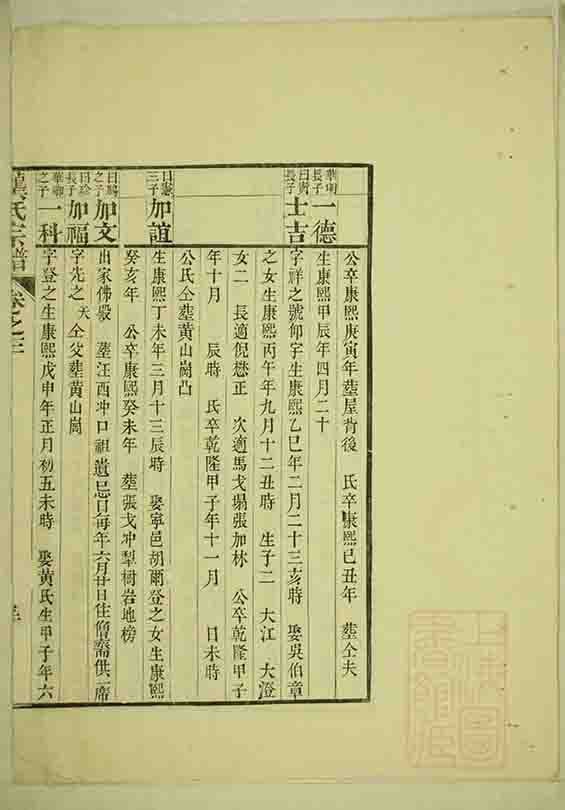 公卒康熙庚寅年塟屋背後　氏卒康熙己丑年　塟仝夫
長子
一德
生康熙甲辰年四月二十
長子
士吉
字祥之號仰字生康熙乙巳年二月二十三亥時　娶吳伯章
之女生康熙丙午年九月十二丑時　生子二　大江　大澄
女二　長適倪懋正　次適馬戈塌張加林　公卒乾隆甲子
年十月　辰時　氏卒乾隆甲子年十一月　日未時
公氏仝塟黃山崗凸
三子
加誼
生康熙丁未年三月十三辰時　娶寧邑胡爾登之女生康熙
癸亥年　公卒康熙癸未年　塟張戈冲犁樹岩地榜
之子
加文
出家佛殿　塟汪酉冲口祖遺忌日每年六月廿日住僧齋供一席
長子
加福
字先之　夭　仝父塟黃山崗
之子
一科
字登之生康熙戊申年正月初五未時　娶黃氏生甲子年六
氏宗譜
卷之三